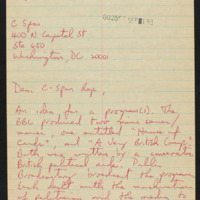 0025 SEP 93
C Span
400 N Capitol St
Ste 650
Washington, DC. 20001
Dear C-Span Rep,
An idea for a program(s). The
BBC produced two mini series/
movies, one entitled "House of
Cards", and "A Very British Coup".
Both were
British political life. Public
Broadcasting broadcast the programs.
Each dealt with the machinations
of politicians and the media to